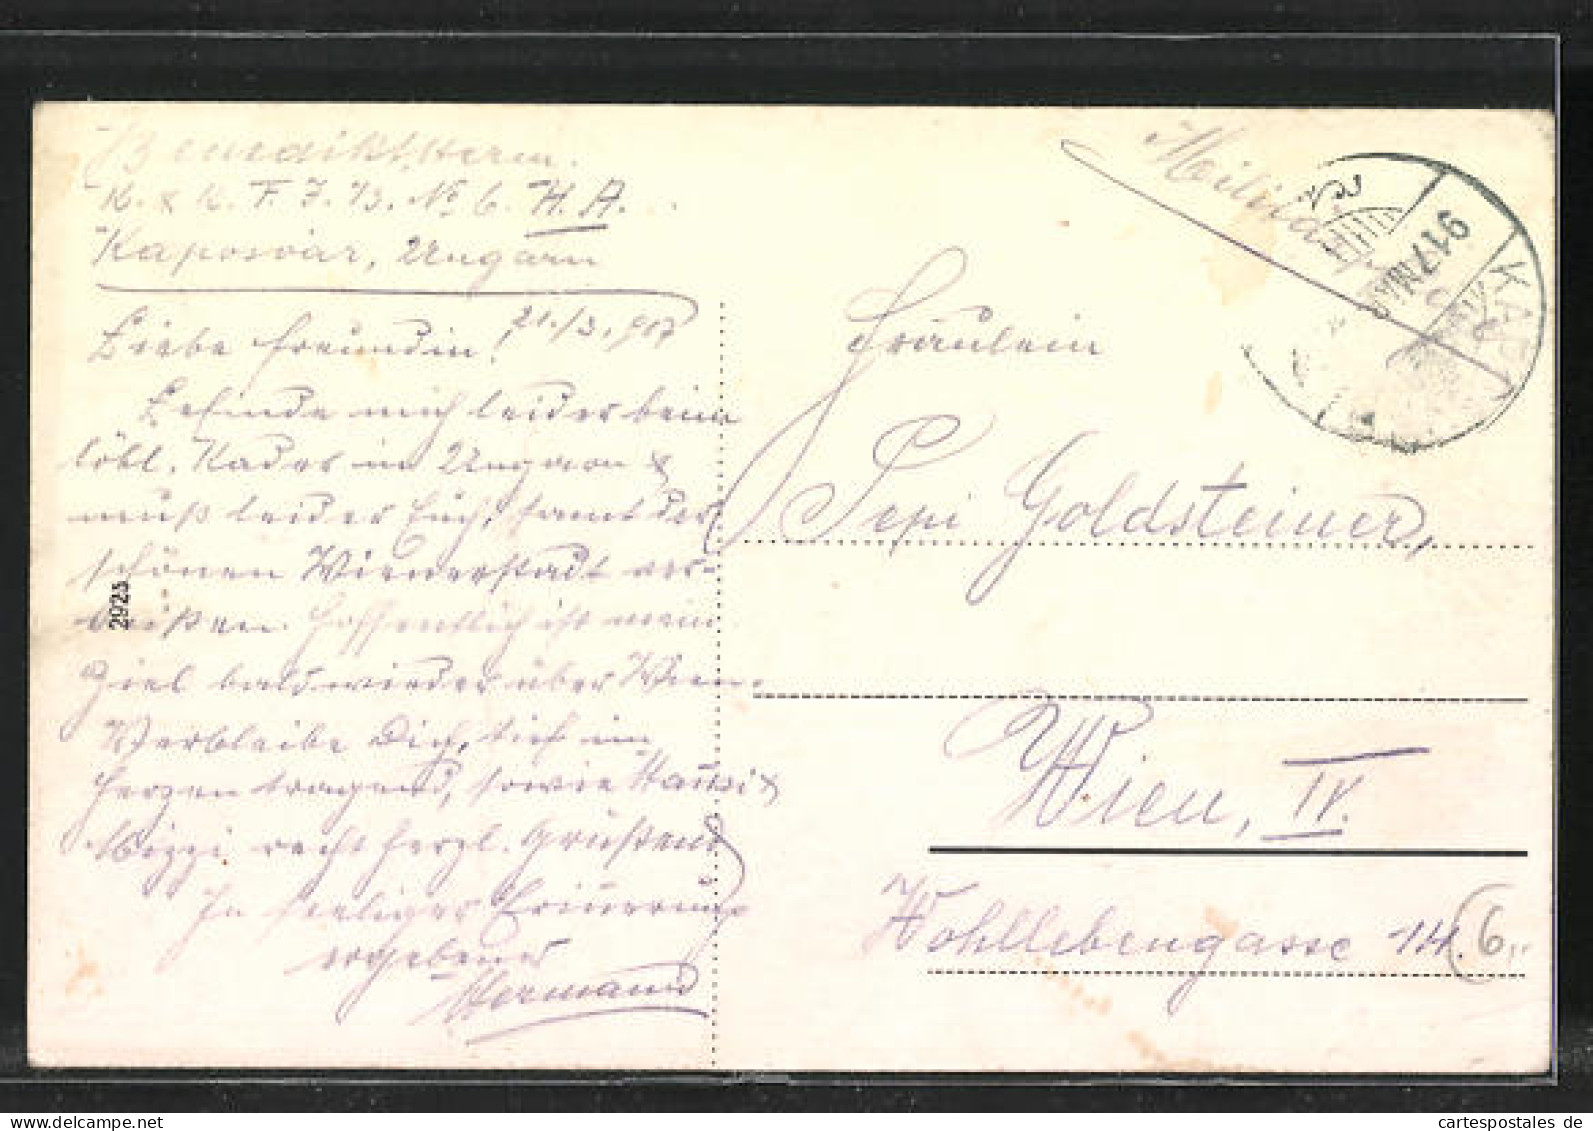 Benedikt Herm.
K. & K. F. J. B. No 6. H. A.
Kaposvár, Ungarn
21./3. 917
Liebe Freundin!
Befinde mich leider beim
löbl. Kader in Ungarn &
muß leider Euch, samt der
schönen Wienerstadt ver-
Hoffentlich ist mein
Ziel bald wieder über Wien.
Verbleibe Dich, tief im
Herzen tragend, sowie Hansi &
Mizzi recht herzl. Grüßend
In seeliger Erinnerung
ergebener
Hermann
2923
Militär
917 MÁ
KAP
Fräulein
Pepi Goldsteiner,
Wien, IV.
Wohllebengasse 14.
6,-
cartespostales de